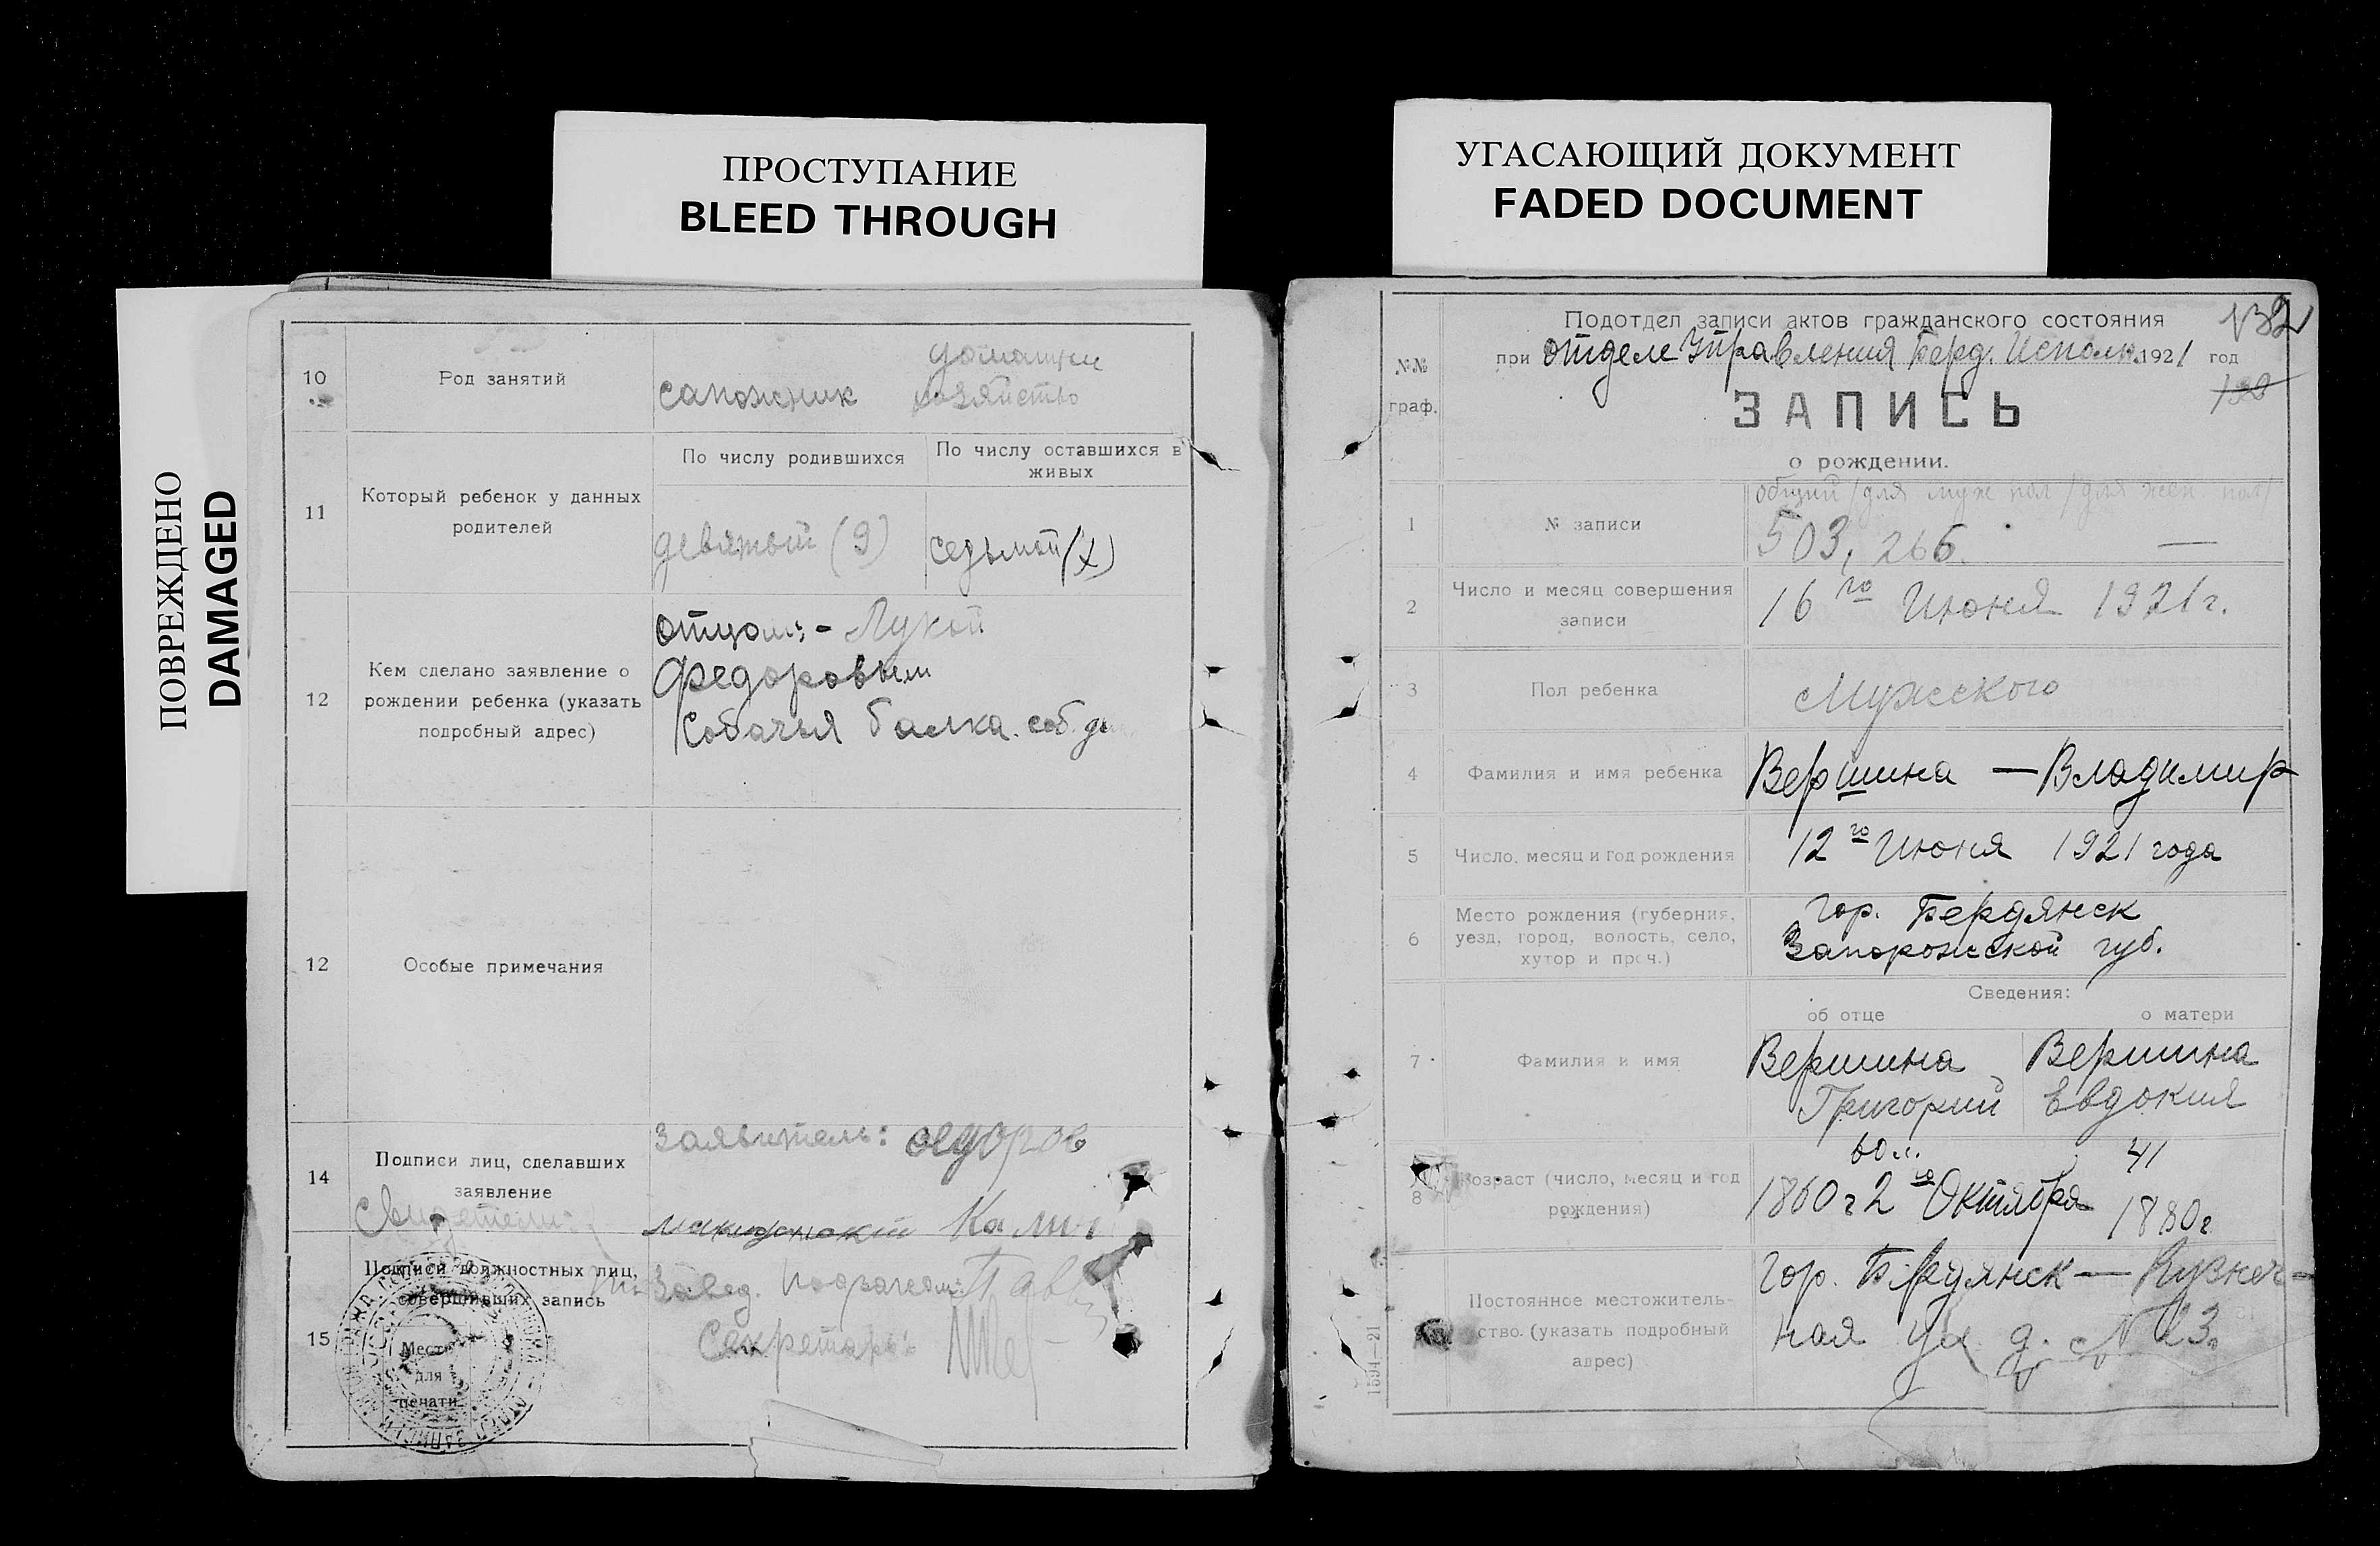 ПРОСТУПАНИЕ
BLEED THROUGH
УГАСАЮЩИЙ ДОКУМЕНТ
FADED DOCUMENT
ПОВРЕЖДЕНО
DAMAGED
10
Род занятий
сапожник
домашнее
хозяйство
11
Который ребенок у данных
родителей
По числу родившихся
По числу оставшихся в
живых
девятый (9)
седьмой
12
Кем сделано заявление о
рождении ребенка (указать
подробный адрес)
отцом:- Лукой
Федоровым
Собачья балка. соб.
12
Особые примечания
14
Подписи лиц, сделавших
заявление
Свидетели:
заявитель:
15
Подписи должностных лиц,
совершивших запись
Завед.
Секретарь:
Место
для
печати
№№
граф.
Подотдел записи актов гражданского состояния
132
при отделе Управления Берд. Исполк. 1921 год
ЗАПИСЬ
о рождении.
общий / для муж пол / для жен. пол /
1
№ записи
503, 266. —
2
Число и месяц совершения
записи
16го Июня 1921 г.
3
Пол ребенка
Мужского
4
Фамилия и имя ребенка
Вершина — Владимир
5
Число, месяц и год рождения
12го Июня 1921 года
6
Место рождения (губерния,
уезд, город, волость, село,
хутор и проч.)
Гор. Бердянск
Запорожской губ.
Сведения:
об отце
о матери
7
Фамилия и имя
Вершина
Григорий
Вершина
Евдокия
8
Возраст (число, месяц и год
рождения)
60 л.
1860 г 2го Октября
41
1880 г
Постоянное местожитель-
ство (указать подробный
адрес)
Гор. Бердянск — Кузнеч-
ная ул. д. № 23.
1594—21